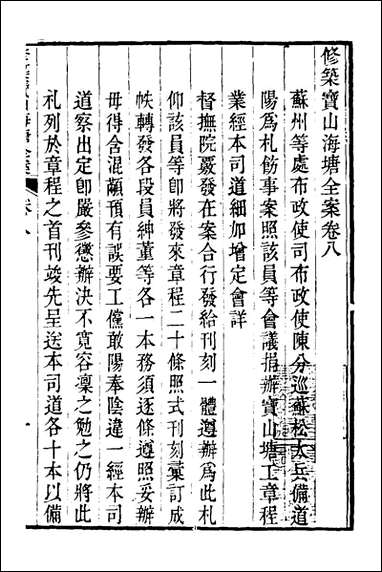 修築寶山海塘全案卷八
蘇州等處布政使司布政使陳分巡蘇松太兵備道
陽為札飭事案照該員等會議捐辦寶山塘工章程
業經本司道細加增定會詳
督撫院覈發在案合行發給刊刻一體遵辦為此札
仰該員等卽將發來章程二十條照式刊刻彙訂成
帙轉發各段員紳董等各一本務須逐條遵照妥辦
毋得含混顢頇有誤要工儻敢陽奉陰違一經本司
道察出定卽嚴參懲辦決不寬容凜之勉之仍將此
札列於章程之首刊竣先呈送本司道各十本以備